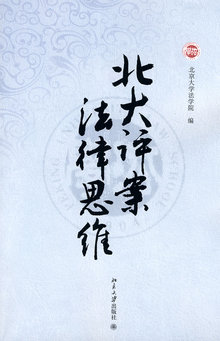 北京大学法学院 编
北大评案
法律思维
北京大学出版社